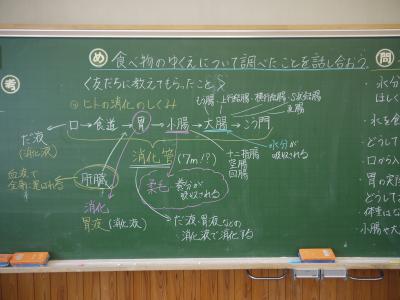 め 食べ物のゆくえについて調べたことを話し合おう。
問
考
〈友だちに教えてもらったこと〉
ヒトの消化のしくみ
もう腸・上行結腸・横行結腸・S状結腸
直腸
口→食道→胃→小腸→大腸→こう門
だ液
(消化液)
消化管(7m!?)
十二指腸
空腸
回腸
水分が
吸収される
肝臓
血液で
全身に運ばれる
柔毛
養分が
吸収される
消化
胃液(消化液)
だ液、胃液などの
消化液で消化する
水分
ほしく
水を
どうして
口から入
胃の実
どうして
体重は
小腸や大